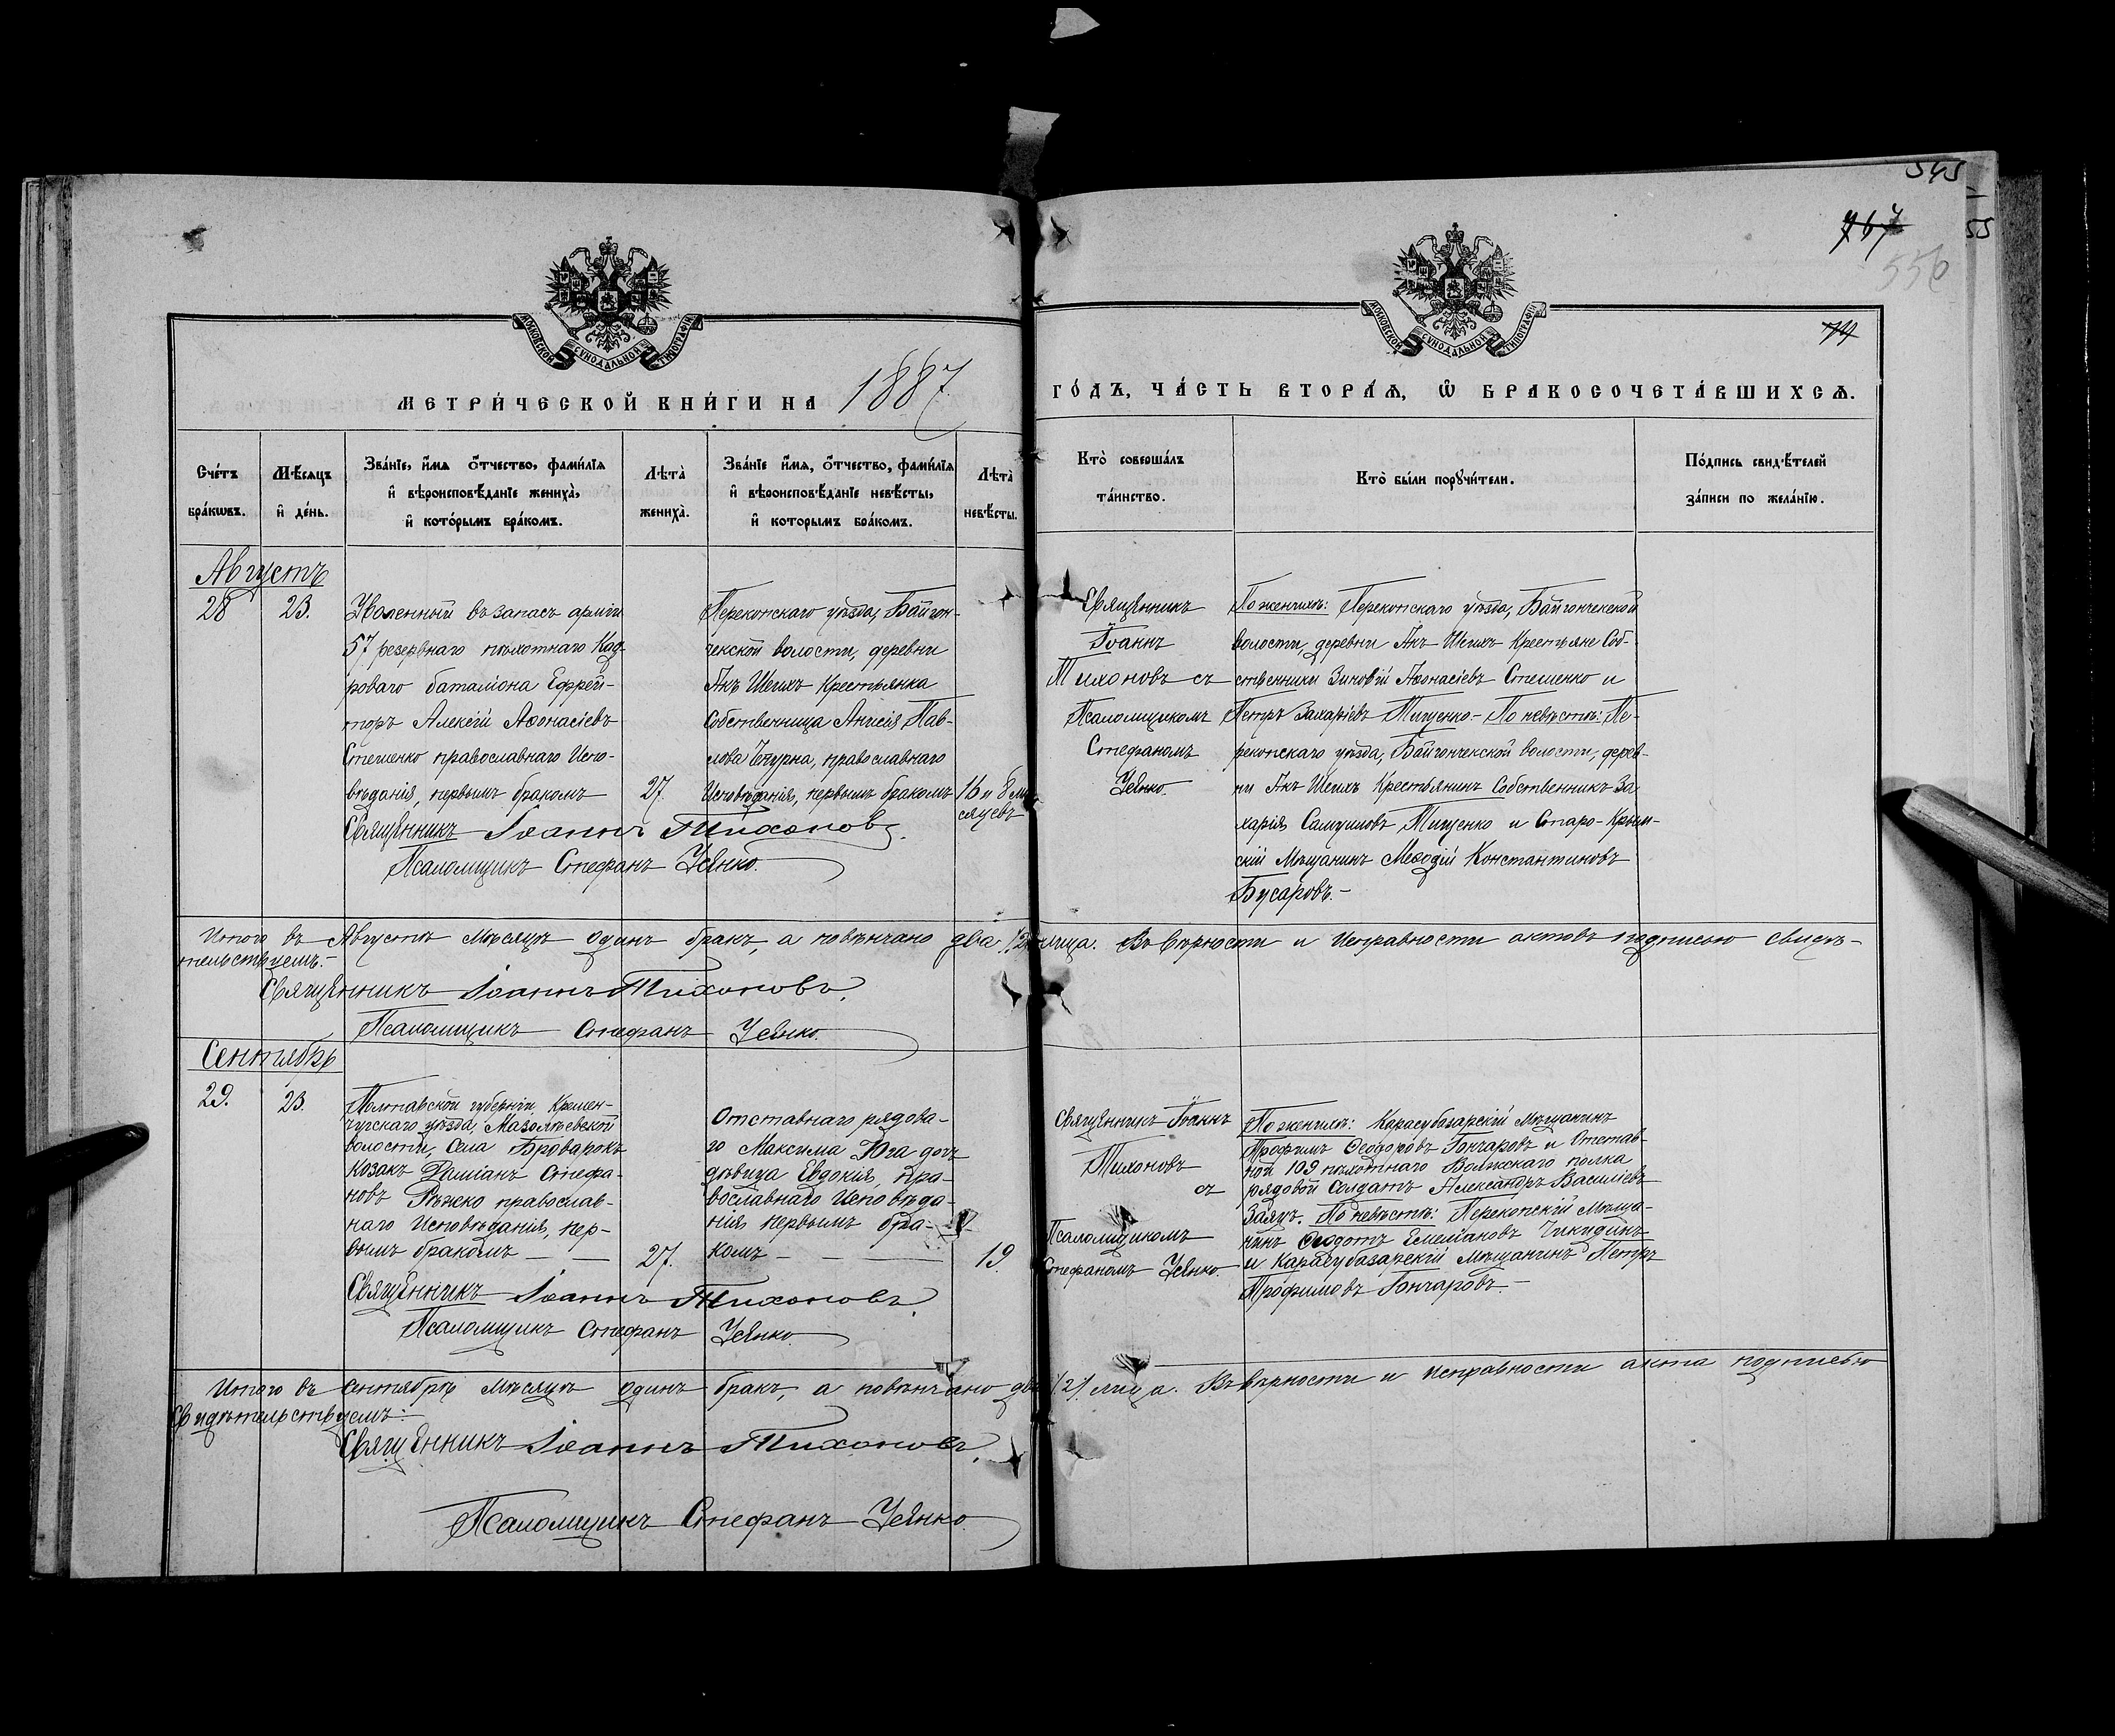 545
767
55
556
МОСКОВСКОЙ СѴНОДАЛЬНОЙ ТИПОГРАФІИ
МОСКОВСКОЙ СѴНОДАЛЬНОЙ ТИПОГРАФІИ
МЕТРИ́ЧЕСКОЙ КНИ́ГИ НА 1887
ГО́ДЪ, ЧА́СТЬ ВТОРА́Ѧ, Ѽ БРАКОСОЧЕТА́ВШИХСѦ.
Сче́тъ бра́кѡвъ.
Мѣ́сяцъ и҆ де́нь.
Зва́нїе, и҆́мѧ ѻ҆́тчество, фами́лїѧ
и҆ вѣроисповѣ́данїе жениха̀,
и҆ кото́рымъ бра́комъ.
Лѣта̀ жениха̀.
Зва́нїе и҆́мѧ, ѻ҆́тчество, фами́лїѧ
и҆ вѣроисповѣ́данїе невѣ́сты,
и҆ которымъ бра́комъ.
Лѣта̀ невѣ́сты.
Кто̀ соверша́лъ та́инство.
Кто̀ бы́ли порꙋчи́тели.
По́дпись свидѣ́телей
за́писи по жела́нїю.
Августъ
28
23.
Уволенный въ запасъ арміи
57 резервнаго пѣхотнаго Кад-
роваго баталіона Ефрей-
торъ Алексій Аѳонасіевъ
Стешенко православнаго Испо-
вѣданія, первымъ бракомъ
27.
Перекопскаго уѣзда, Байгон-
чекской волости, деревни
Акъ Шеихъ Крестьянка
Собственница Анисія Пав-
лова православнаго
Исповѣданія, первымъ бракомъ
16 и 8 мѣ
сяцевъ
Священникъ
Іоаннъ
Тихоновъ съ
Псаломщикомъ
Стефаномъ
Уѣнко.
По женихѣ: Перекопскаго уѣзда, Байгончекской
волости, деревни Акъ Шеихъ Крестьяне Соб-
ственники Зиновій Аѳонасіевъ Стешенко и
Петръ Захаріевъ Тищенко.- По невѣстѣ: Пе-
рекопскаго уѣзда, Байгончекской волости, дерев-
ни Акъ Шеихъ Крестьянинъ Собственникъ За
харія Самуиловъ Тищенко и Старо-Крым-
скій Мѣщанинъ Меѳодій Константиновъ
Бусаровъ.-
Священникъ Іоаннъ Тихоновъ.
Псаломщикъ Стефанъ Уѣнко.
Итого въ Августѣ Мѣсяцѣ одинъ бракъ, а повѣнчано два /2/ лица. Въ вѣрности и Исправности актовъ подписью свидѣ-
тельствуемъ.-
Священникъ Іоаннъ Тихоновъ.
Псаломщикъ Стефанъ Уѣнко.
Сентябрь
29.
23.
Полтавской губерніи, Кремен-
чугскаго уѣзда, Мазолѣевской
волости, Села Броварокъ
Козакъ Даміанъ Стефа-
новъ православ-
наго Исповѣданія, пер-
вымъ бракомъ
27.
Отставнаго рядова-
го Максима Юга дочь
дѣвица Евдокія, пра-
вославнаго Исповѣда-
нія первымъ бра-
комъ
19.
Священникъ Іоаннъ
Тихоновъ
съ
Псаломщикомъ
Стефаномъ Уѣнко.
По женихѣ: Карасубазарскій Мѣщанинъ
Трофимъ Ѳеодоровъ Гончаровъ и Отстав-
ной 109 пѣхотнаго Волжскаго полка
рядовой Солдатъ Александръ Василіевъ
Заяцъ. По невѣстѣ: Перекопскій Мѣща-
нинъ Ѳеодотъ Емеліановъ Чикидинъ
и Карасубазарскій Мѣщанинъ Петръ
Трофимовъ Гончаровъ.-
Священникъ Іоаннъ Тихоновъ
Псаломщикъ Стефанъ Уѣнко
Итого въ Сентябрѣ Мѣсяцѣ одинъ бракъ, а повѣнчано два /2/ лица. Въ вѣрности и Исправности акта подписью
Свидѣтельствуемъ:
Священникъ Іоаннъ Тихоновъ.
Псаломщикъ Стефанъ Уѣнко